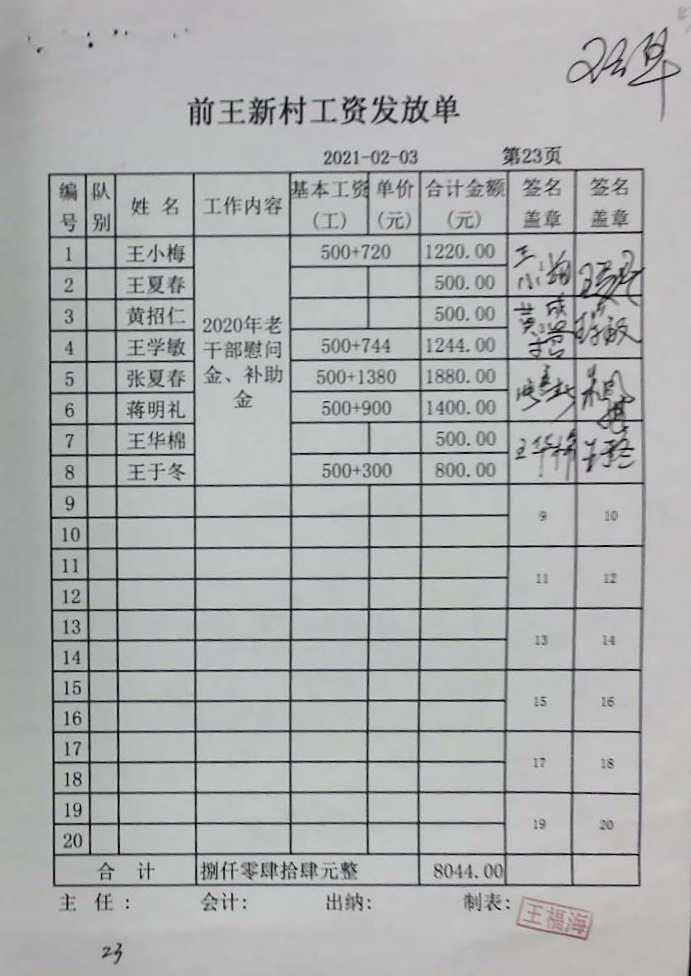 前王新村工资发放单
2021-02-03 第23页
编号 队别 姓名 工作内容 基本工资(工) 单价(元) 合计金额(元) 签名盖章 签名盖章
1 王小梅 500+720 1220.00
2 王夏春 500.00
3 黄招仁 500.00
2020年老干部慰问金、补助金
4 王学敏 500+744 1244.00
5 张夏春 500+1380 1880.00
6 蒋明礼 500+900 1400.00
7 王华棉 500.00 王华棉
8 王于冬 500+300 800.00
9
9 10
10
11
11 12
12
13
13 14
14
15
15 16
16
17
17 18
18
19
19 20
20
合计 捌仟零肆拾肆元整 8044.00
主任: 会计: 出纳: 制表: 王福海
23